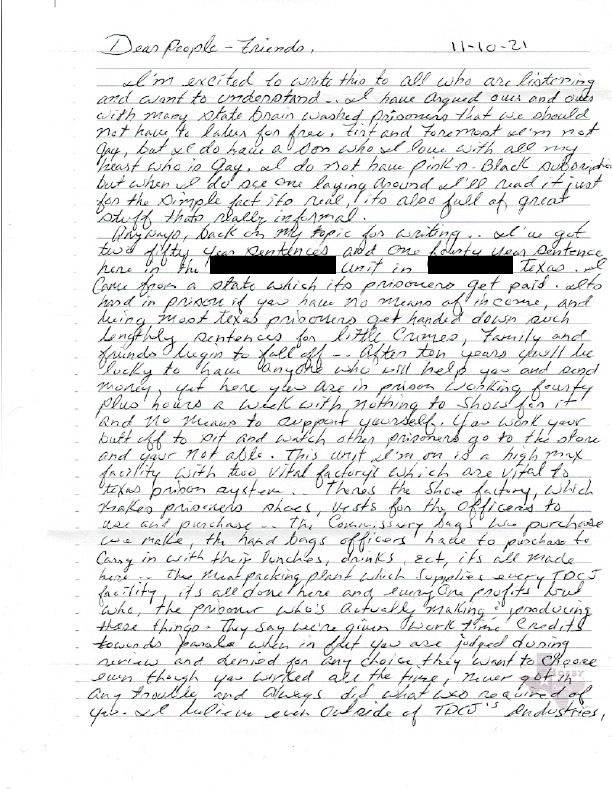 Dear People - Friends,     11-10-21
I'm excited to write this to all who are listening
and want to understand.. I have argued over and over
with many state brain washed prisoners that we should
not have to labor for free. First and foremost I'm not
Gay, but I do have a son who I love with all my
heart who is Gay. I do not have Pink-n-Black subscription
but when I do see one laying around I'll read it just
for the simple fact its real, its also full of great
stuff thats really informal.
Anyways, back on my topic for writing.. I've got
two fifty year sentences and one fourty year sentence
here in the unit in Texas. I
Came from a state which its prisoners get paid. Its
hard in prison if you have no means of income, and
being most Texas prisoners get handed down such
lengthly sentences for little Crimes, Family and
friends begin to fall off -- After ten years you'll be
lucky to have anyone who will help you and send
money, yet here you are in prison working fourty
plus hours a week with nothing to show for it
and no means to support yourself. You work your
butt off to sit and watch other prisoners go to the store
and your not able. This unit I'm on is a high max
facility with two vital factory's which are vital to
texas prison system.. Theres the shoe factory, which
makes prisoners shoes, vests for the officers to
use and purchase.. The Commissery bags we purchase
we make, the hand bags officers have to purchase to
Carry in with their lunches, drinks, ect, its all made
here.. The Meat packing plant which supplies every TDCJ
facility, it's all done here and every One profits but
who, the prisoner who's Actually making & producing
these things. They say we're given work time Credits
towards parole when in fact you are judged during
review and denied for any choice they want to choose
even though you worked all the time, never got in
any trouble and always did what was required of
you. I believe even outside of TDCJ's Industries,